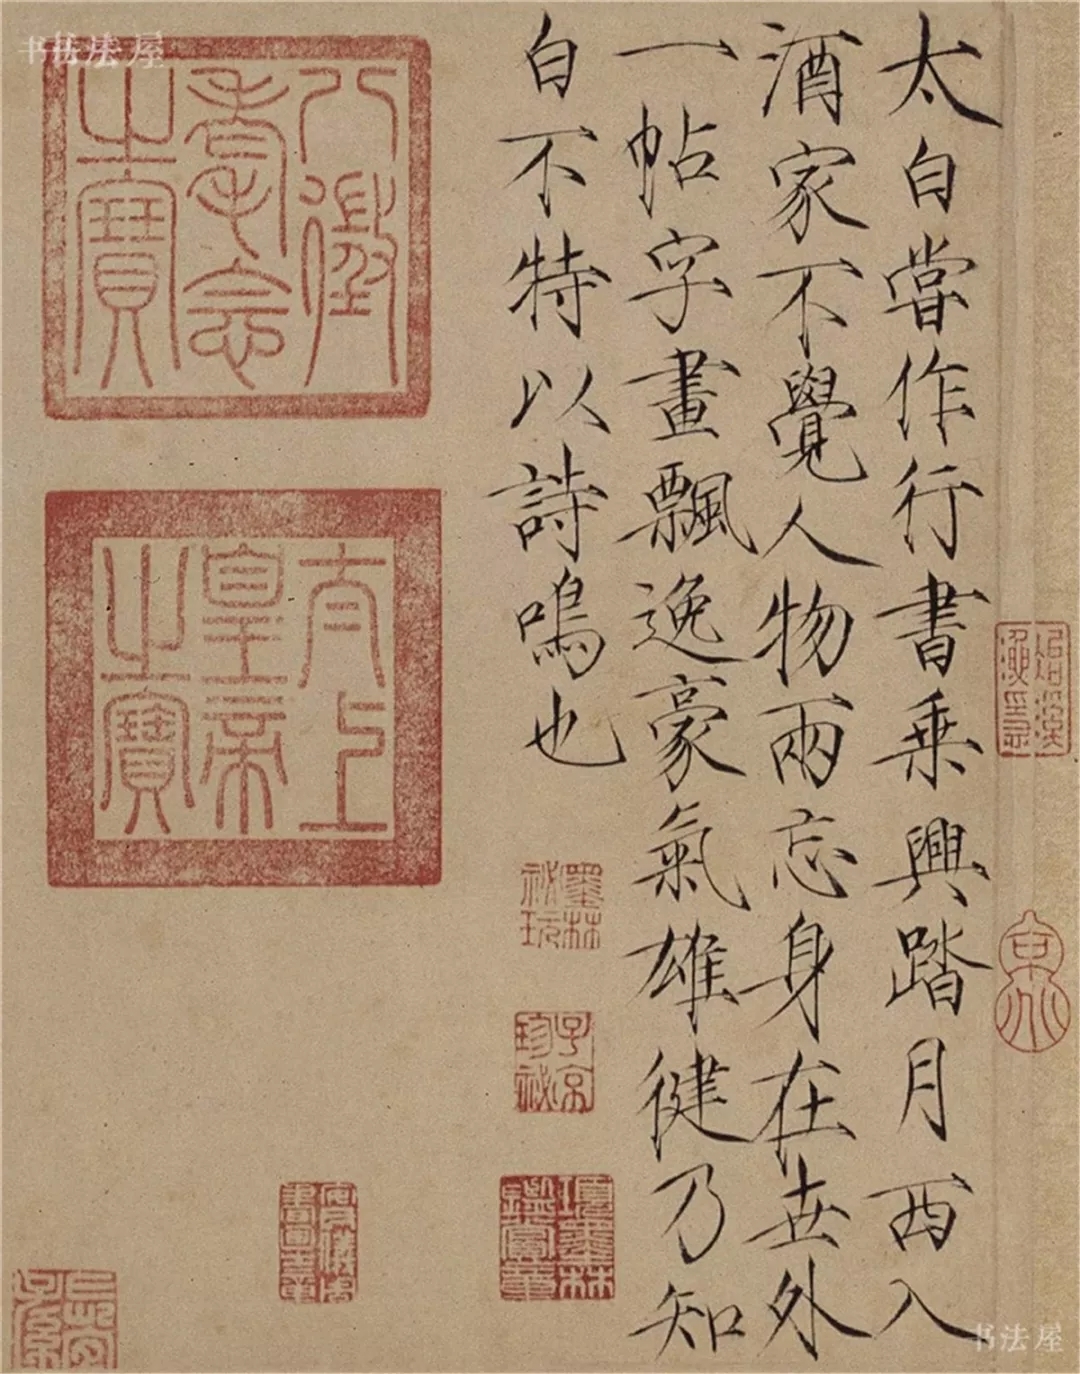 太白嘗作行書乗興踏月西入
酒家不覺人物兩忘身在世外
一帖字畫飄逸豪氣雄健乃知
白不特以詩鳴也
八徵耄念之寶
太上皇帝之寶
墨林祕玩
子京珍祕
項墨林鑑賞章
安儀周家珍
書法屋
书法屋